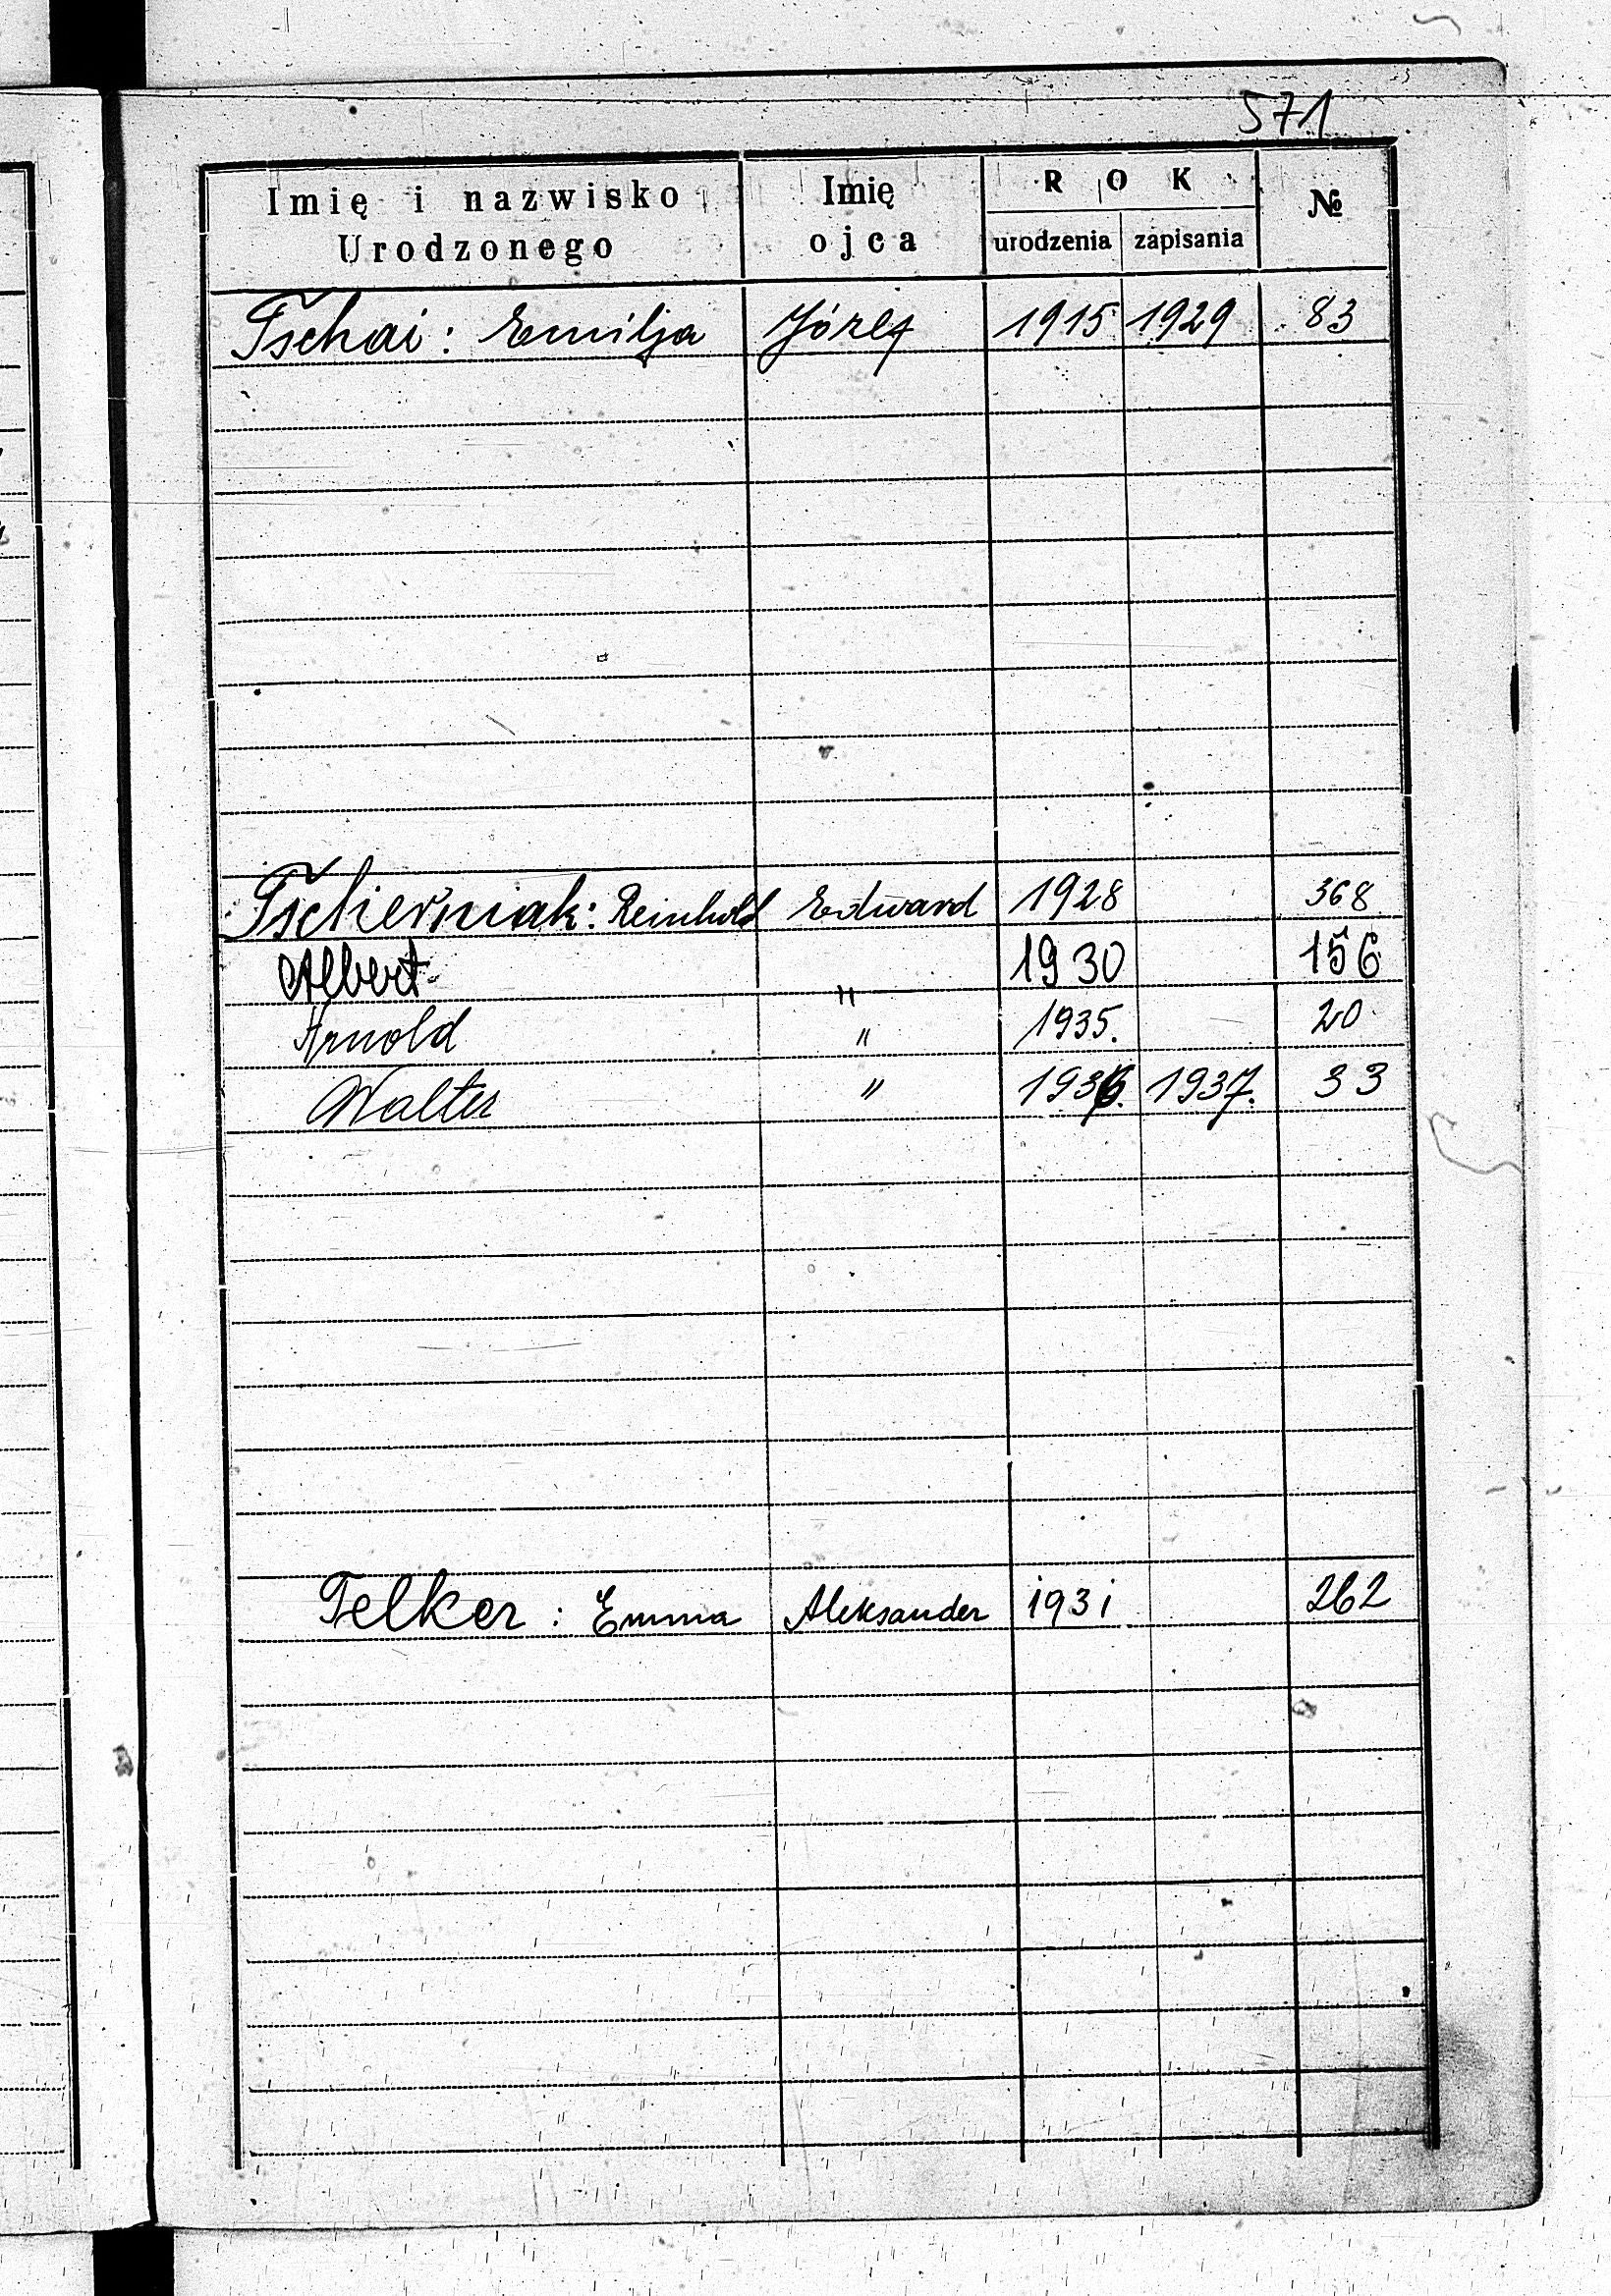 571
Imię i nazwisko Urodzonego | Imię ojca | ROK urodzenia | zapisania | №
Tschai: Emilja Józef 1915 1929 83
Tscherniak: Reinhold Edward 1928 368
Albert " 1930 156
Arnold " 1935. 20
Walter " 1936. 1937. 33
Telker: Emma Aleksander 1931 262